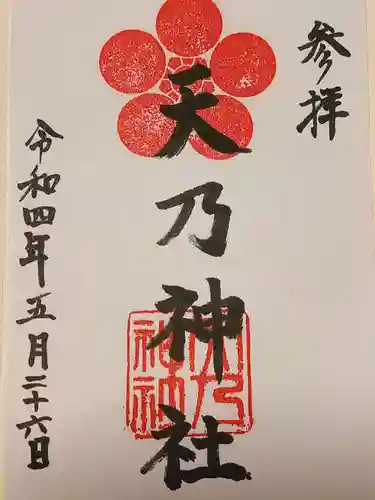 参拝
天乃神社
天乃
神社
令和四年五月二十六日